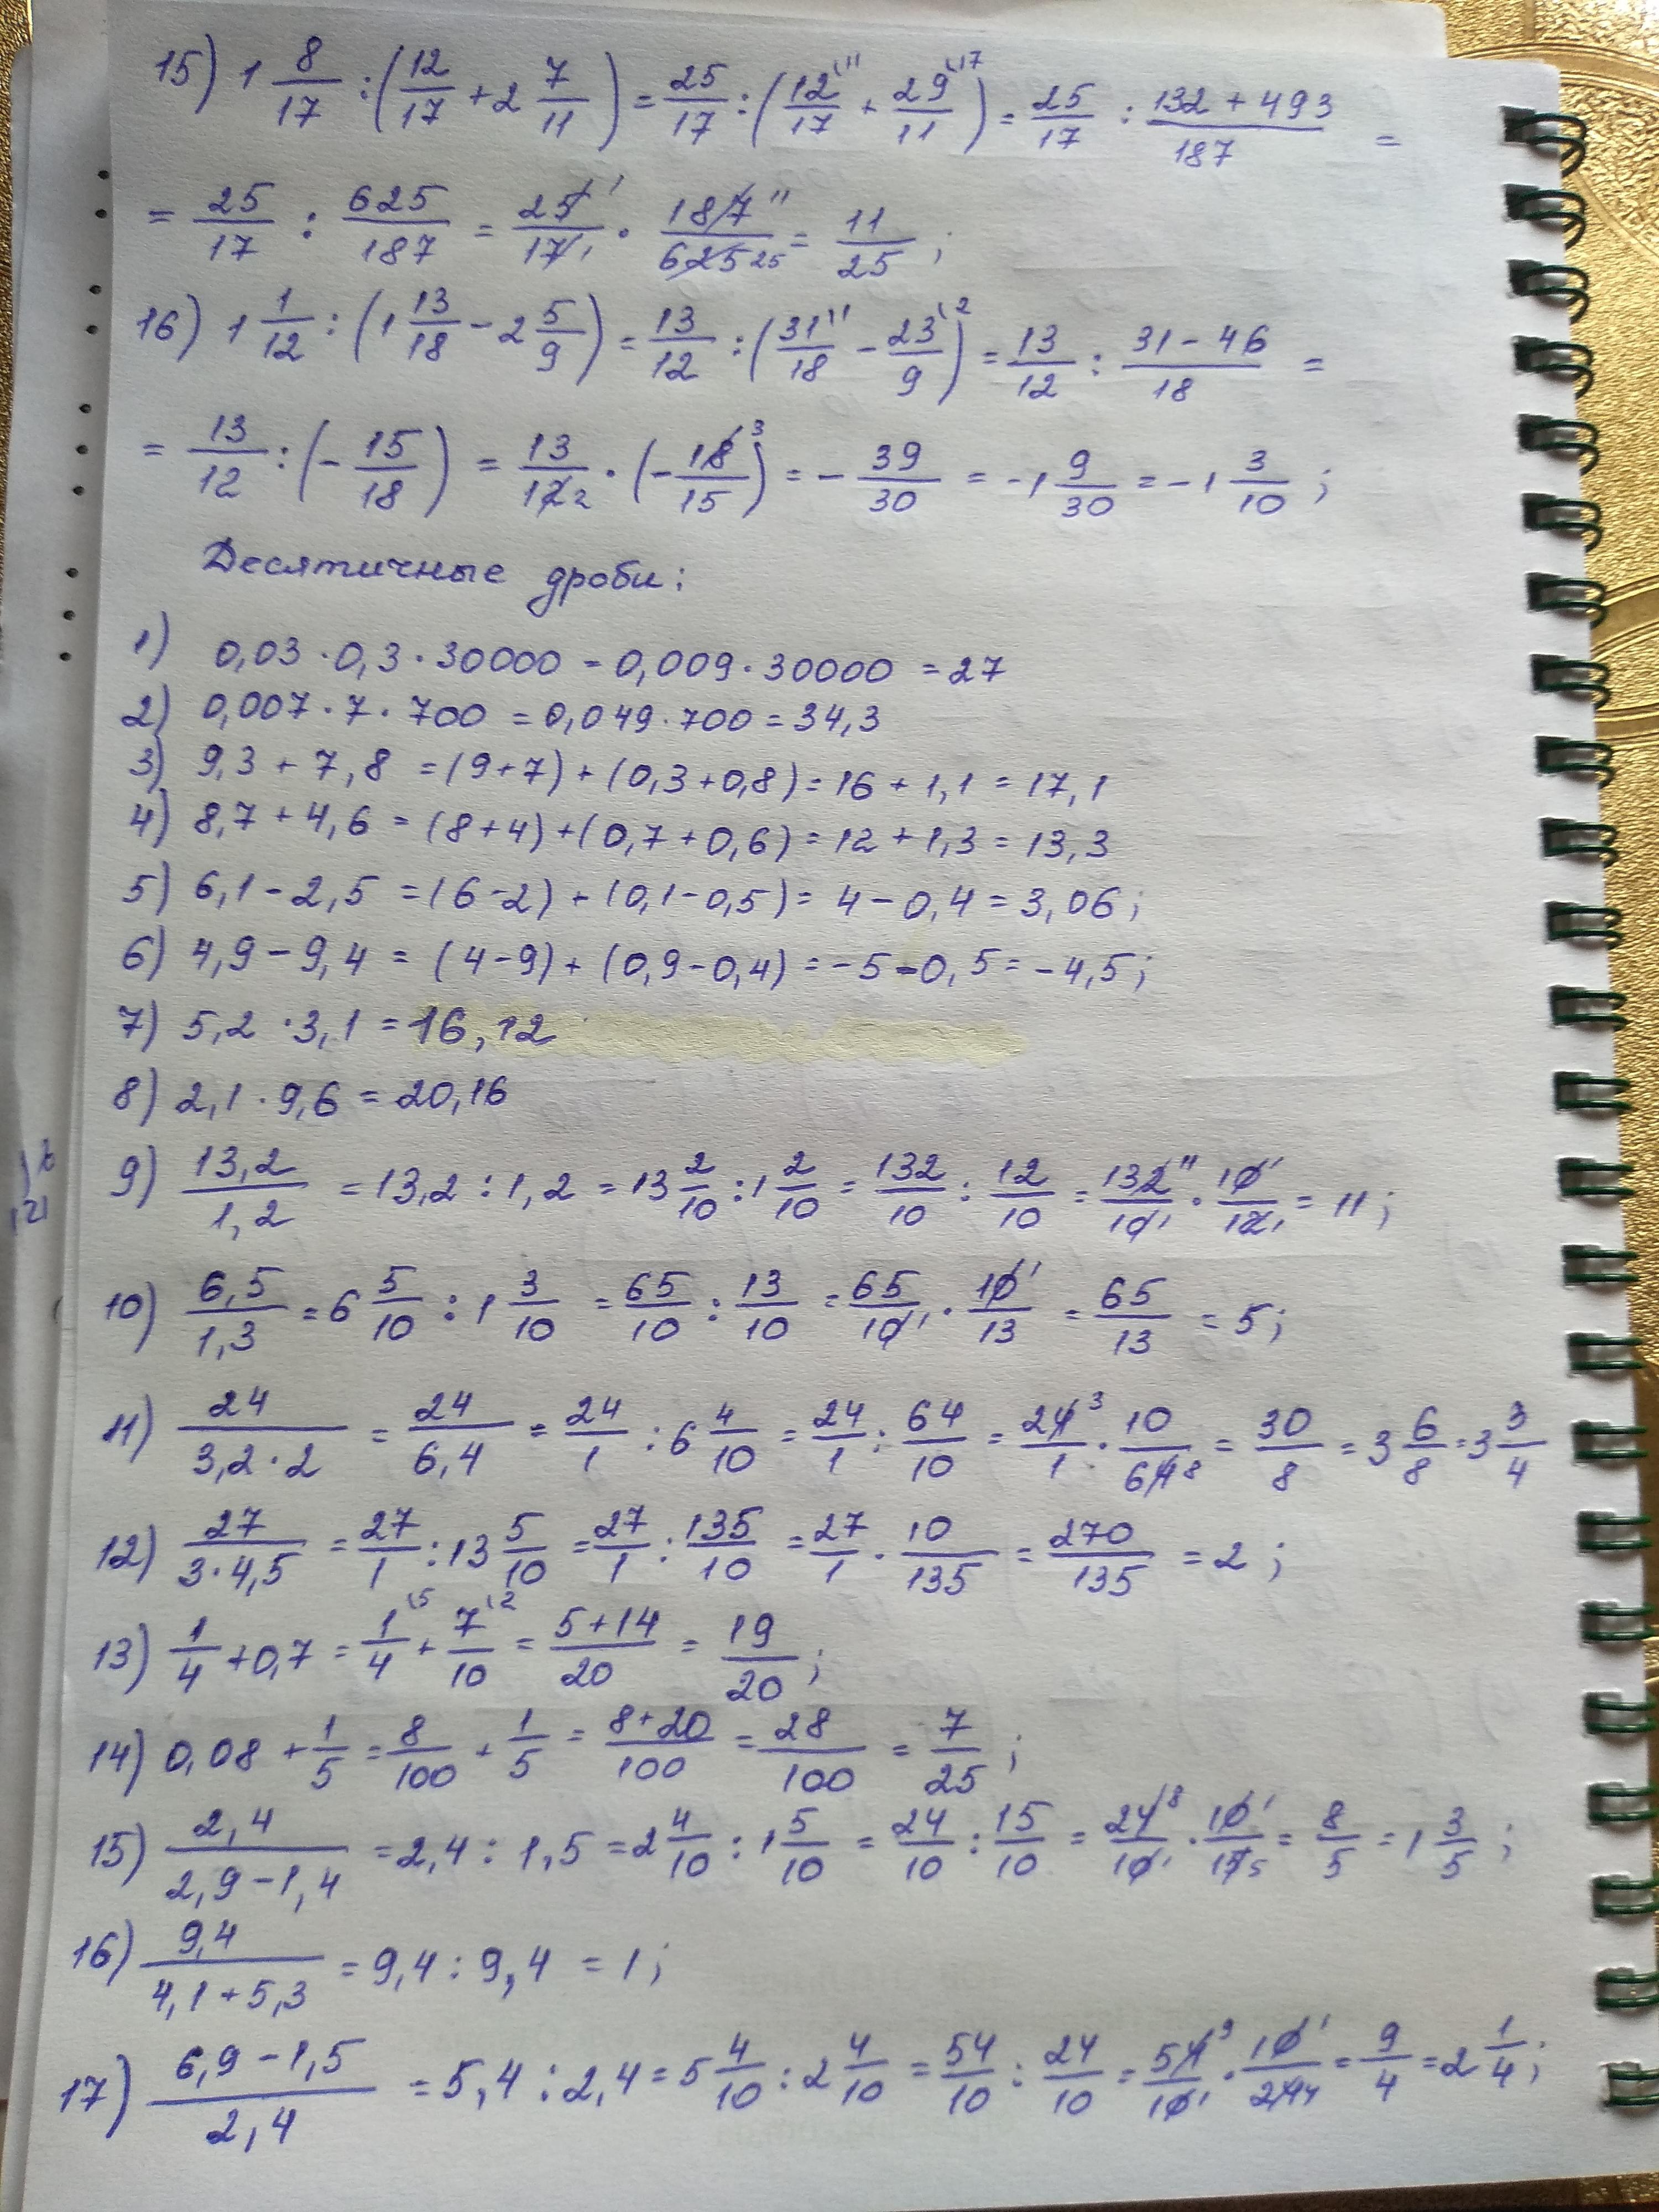 15) 1 8/17 : (12/17 + 2 7/11) = 25/17 : (12\11/17 + 29\17/11) = 25/17 : (132 + 493)/187 =
= 25/17 : 625/187 = 25 1/17 1 · 187 11/625 25 = 11/25 ;
16) 1 1/12 : (1 13/18 - 2 5/9) = 13/12 : (31\1/18 - 23\2/9) = 13/12 : (31 - 46)/18 =
= 13/12 : (- 15/18) = 13/12 2 · (- 18 3/15) = - 39/30 = -1 9/30 = -1 3/10 ;
Десятичные дроби:
1) 0,03 · 0,3 · 30000 = 0,009 · 30000 = 27
2) 0,007 · 7 · 700 = 0,049 · 700 = 34,3
3) 9,3 + 7,8 = (9+7) + (0,3+0,8) = 16 + 1,1 = 17,1
4) 8,7 + 4,6 = (8+4) + (0,7+0,6) = 12 + 1,3 = 13,3
5) 6,1 - 2,5 = (6-2) + (0,1-0,5) = 4 - 0,4 = 3,06 ;
6) 4,9 - 9,4 = (4-9) + (0,9-0,4) = -5 - 0,5 = -4,5 ;
7) 5,2 · 3,1 = 16,12
8) 2,1 · 9,6 = 20,16
9) 13,2/1,2 = 13,2 : 1,2 = 13 2/10 : 1 2/10 = 132/10 : 12/10 = 132 11/10 1 · 10 1/12 1 = 11 ;
10) 6,5/1,3 = 6 5/10 : 1 3/10 = 65/10 : 13/10 = 65/10 1 · 10 1/13 = 65/13 = 5 ;
11) 24/(3,2 · 2) = 24/6,4 = 24/1 : 6 4/10 = 24/1 : 64/10 = 24 3/1 · 10/64 8 = 30/8 = 3 6/8 = 3 3/4
12) 27/(3 · 4,5) = 27/1 : 13 5/10 = 27/1 : 135/10 = 27/1 · 10/135 = 270/135 = 2 ;
13) 1/4 + 0,7 = 1\5/4 + 7\2/10 = (5+14)/20 = 19/20 ;
14) 0,08 + 1/5 = 8/100 + 1/5 = (8+20)/100 = 28/100 = 7/25 ;
15) 2,4/(2,9 - 1,4) = 2,4 : 1,5 = 2 4/10 : 1 5/10 = 24/10 : 15/10 = 24 8/10 1 · 10 1/15 5 = 8/5 = 1 3/5 ;
16) 9,4/(4,1 + 5,3) = 9,4 : 9,4 = 1 ;
17) (6,9 - 1,5)/2,4 = 5,4 : 2,4 = 5 4/10 : 2 4/10 = 54/10 : 24/10 = 54 9/10 1 · 10 1/24 4 = 9/4 = 2 1/4 ;